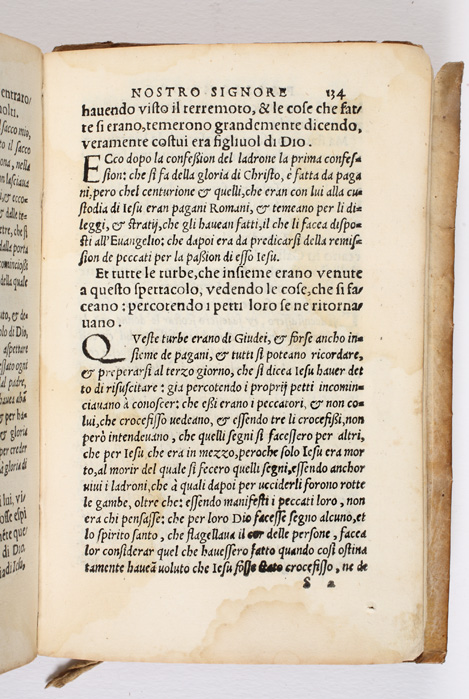 entrato/
nolti.
sacco mio,
to il sacco
ona, nella
n lasciaua
, & ecco=
& dalle te=
tre, che si
dalle porta
cominciossi
della quale
uto, & de=
olo di Dio,
aspettare
estato ogni
al padre,
hauea dato
& per ha=
& gloria
per creder
à gloria di
i lui, vi=
osse espi
nēte que/
di Dio.
ia di Iesu,
NOSTRO SIGNORE 134
hauendo visto il terremoto, & le cose che fat/
te si erano, temerono grandemente dicendo,
veramente costui era figliuol di Dio.
ECco dopo la confeßion del ladrone la prima confes=
sion: che si fa della gloria di Christo, è fatta da paga
ni, pero chel centurione & quelli, che eran con lui alla cu=
stodia di Iesu eran pagani Romani, & temeano per li di=
leggi, & stratij, che gli hauean fatti, il che li facea dispo=
sti all'Euangelio: che dapoi era da predicarsi della remis=
sion de peccati per la paßion di esso Iesu.
Et tutte le turbe, che insieme erano venute
a questo spettacolo, vedendo le cose, che si fa=
ceano: percotendo i petti loro se ne ritorna=
uano.
QVeste turbe erano di Giudei, & forse ancho in=
sieme de pagani, & tutti si poteano ricordare,
& prepararsi al terzo giorno, che si dicea Iesu hauer det
to di risuscitare: già percotendo i proprij petti incomin=
ciauano à conoscer: che eßi erano i peccatori, & non co=
lui, che crocefisso uedeano, & essendo tre li crocefißi, non
però intendeuano, che quelli segni si facessero per altri,
che per Iesu che era in mezzo, peroche solo Iesu era mor
to, al morir del quale si fecero quelli segni, essendo anchor
uiui i ladroni, che à quali dapoi per ucciderli forono rotte
le gambe, oltre che: essendo manifesti i peccati loro, non
era chi pensasse: che per loro Dio facesse segno alcuno, et
lo spirito santo, che flagellaua il cor delle persone, facea
lor considerar quel che hauessero fatto quando così ostina
tamente haueā voluto che Iesu fosse stato crocefisso, ne de
S 2